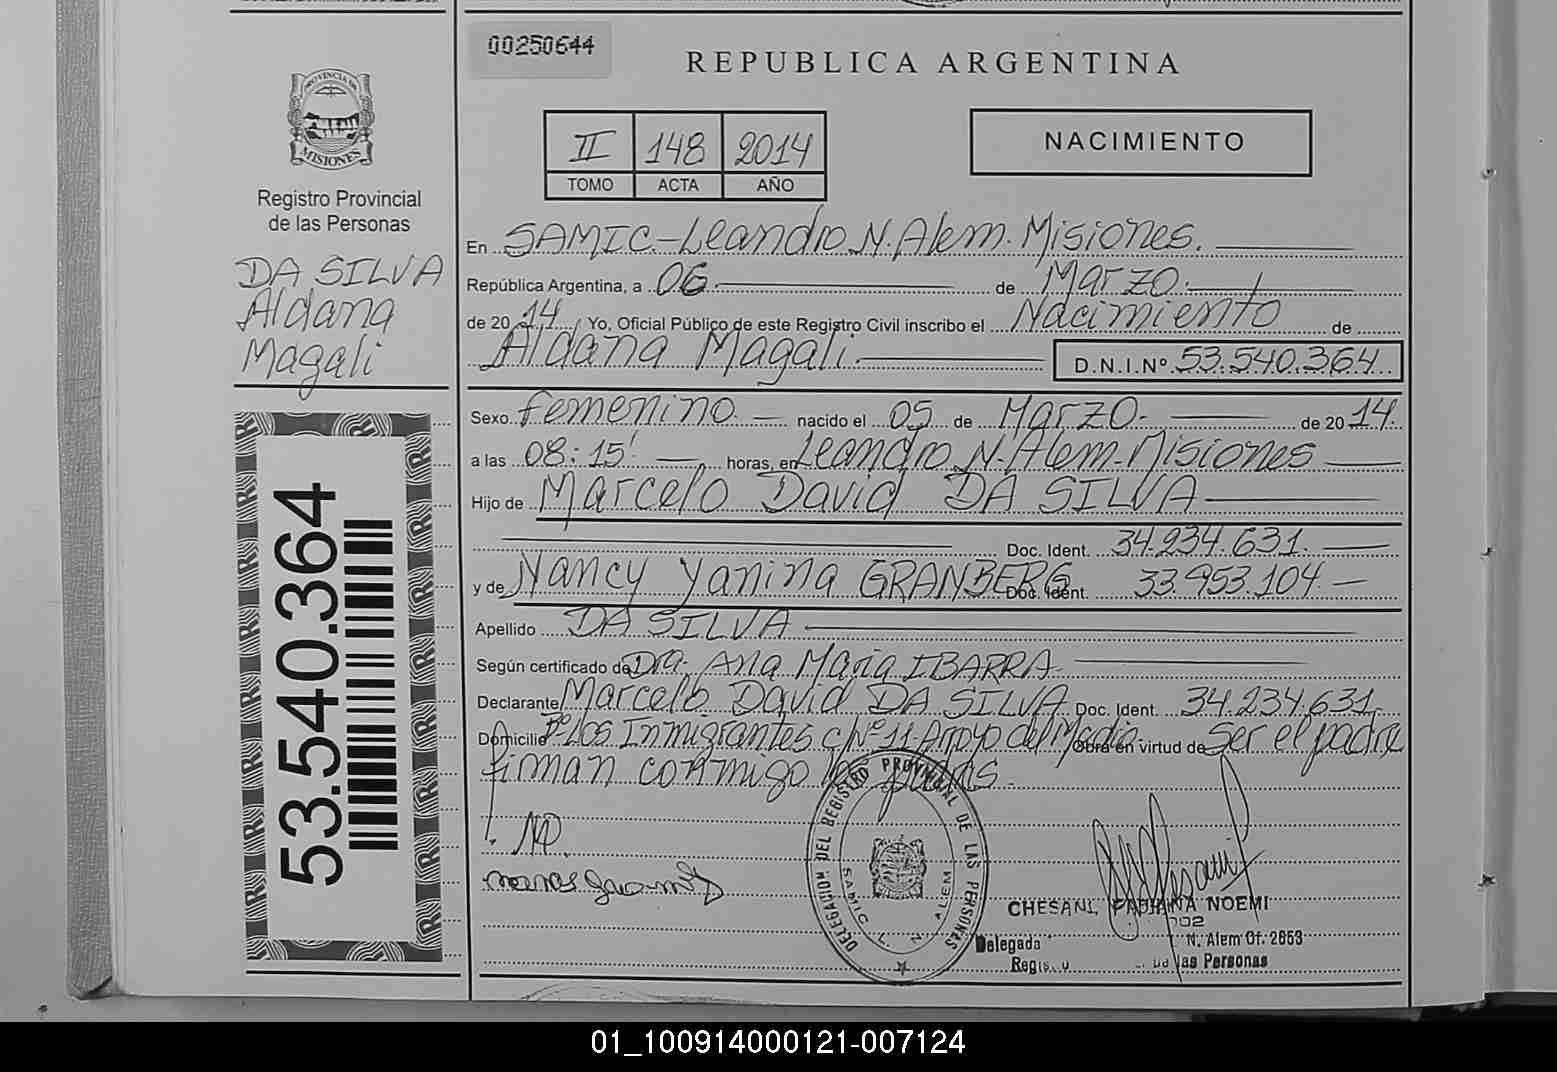 00250644
REPUBLICA ARGENTINA
PROVINCIA DE
MISIONES
Registro Provincial
de las Personas
II 148 2014
TOMO ACTA AÑO
NACIMIENTO
DA SILVA
Aldana
Magali
53.540.364
En SAMIC.-Leandro N. Alem. Misiones.
República Argentina, a 06 de Marzo.
de 2014 Yo, Oficial Público de este Registro Civil inscribo el Nacimiento de
Aldana Magali. D.N.I.Nº 53.540.364
Sexo femenino. nacido el 05 de Marzo. de 2014.
a las 08:15' horas, en Leandro N. Alem-Misiones
Hijo de Marcelo David DA SILVA
Doc. Ident. 34.234.631.
y de Nancy Yanina GRANBERG Doc. Ident. 33.953.104.
Apellido DA SILVA
Según certificado de Dra. Ana Maria IBARRA.
Declarante Marcelo David DA SILVA Doc. Ident. 34.234.631.
Domicilio Bº Los Inmigrantes c/Nº 11-Arroyo del Medio. Obra en virtud de Ser el padre
firman conmigo los padres.
DELEGACION DEL REGISTRO PROVINCIAL DE LAS PERSONAS
SAMIC L. N. ALEM
CHESANI, FABIANA NOEMI
Delegada
N. Alem Of. 2653
las Personas
01_100914000121-007124